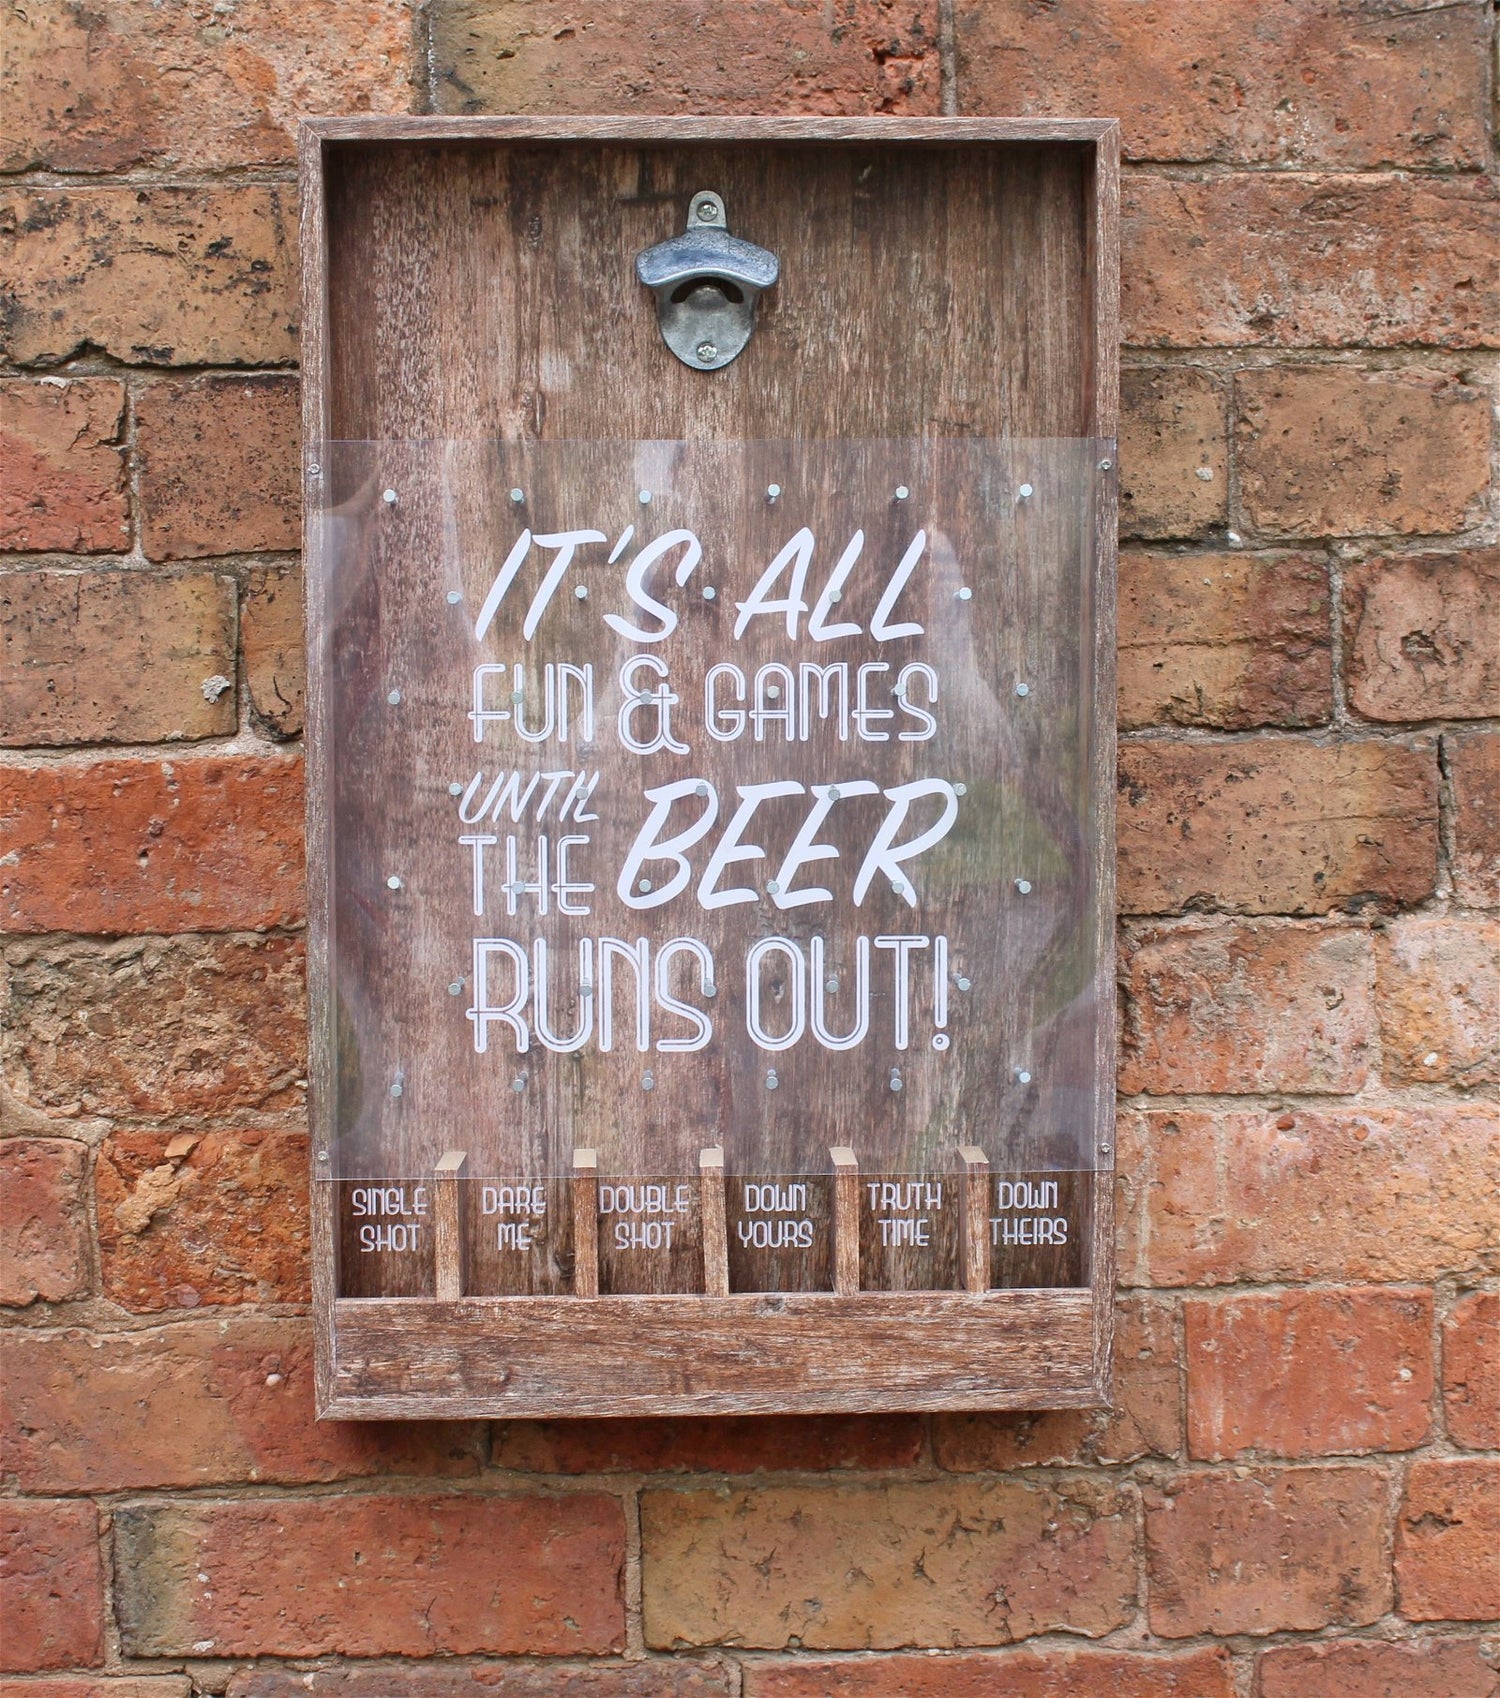 IT'S ALL
FUN & GAMES
UNTIL
THE BEER
RUNS OUT!
SINGLE
SHOT
DARE
ME
DOUBLE
SHOT
DOWN
YOURS
TRUTH
TIME
DOWN
THEIRS